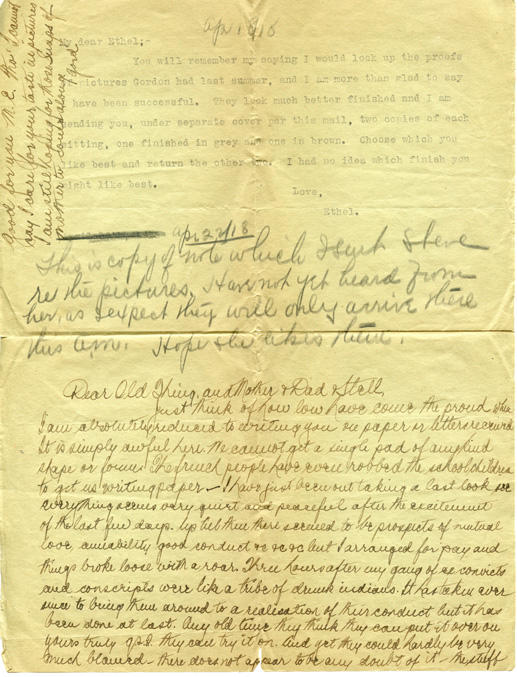 apr 18
My dear Ethel;-
You will remember my saying I would look up the proofs
pictures Gordon had last summer, and I am more than glad to say
have been successful. They look much better finished and I am
sending you, under separate cover per this mail, two copies of each
sitting, one finished in grey and one in brown. Choose which you
like best and return the other two. I had no idea which finish you
might like best.
Love,
Ethel.
Good for you N. E. tho'
say I care for your taste in pictures
I am still hoping for those snaps of
mother to come along Gord
apr 22/18
This is copy of note which I sent Steve
re the pictures, Have not yet heard from
her, as I expect they will only arrive there
this a.m. Hope she likes them.
Dear Old King, and Mother & Dad & Stell,
Just think of how low have come the proud when
I am absolutely reduced to writing you on paper or letters received
It is simply awful here. We cannot get a single pad of any kind
shape or form. The french people have even robbed the school children
to get us writing paper — I have just been out taking a last look see
everything seems very quiet and peaceful after the excitement
of the last few days. Up till then there seemed to be prospects of mutual
love amiability good conduct &c &c &c but I arranged for pay and
things broke loose with a roar. Three hours after my gang of ex convicts
and conscripts were like a tribe of drunk indians. It has taken ever
since to bring them around to a realisation of their conduct but it has
been done at last. Any old time they think they can put it over on
yours truly they can try it on. And yet they could hardly be very
much blamed – there does not appear to be any doubt of it – the stuff